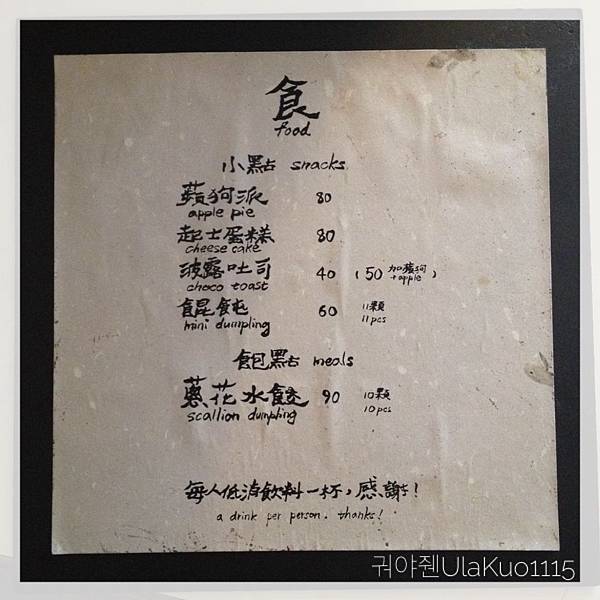 食
food
小點 snacks
蘋狗派 80
apple pie
起士蛋糕 80
cheese cake
波露吐司 40 (50 加蘋狗 +apple)
choco toast
餛飩 60 11顆
mini dumpling 11pcs
飽點 meals
蔥花水餃 90 10顆
scallion dumpling 10pcs
每人低消飲料一杯，感謝！
a drink per person. thanks!
귀야쥔UlaKuo1115